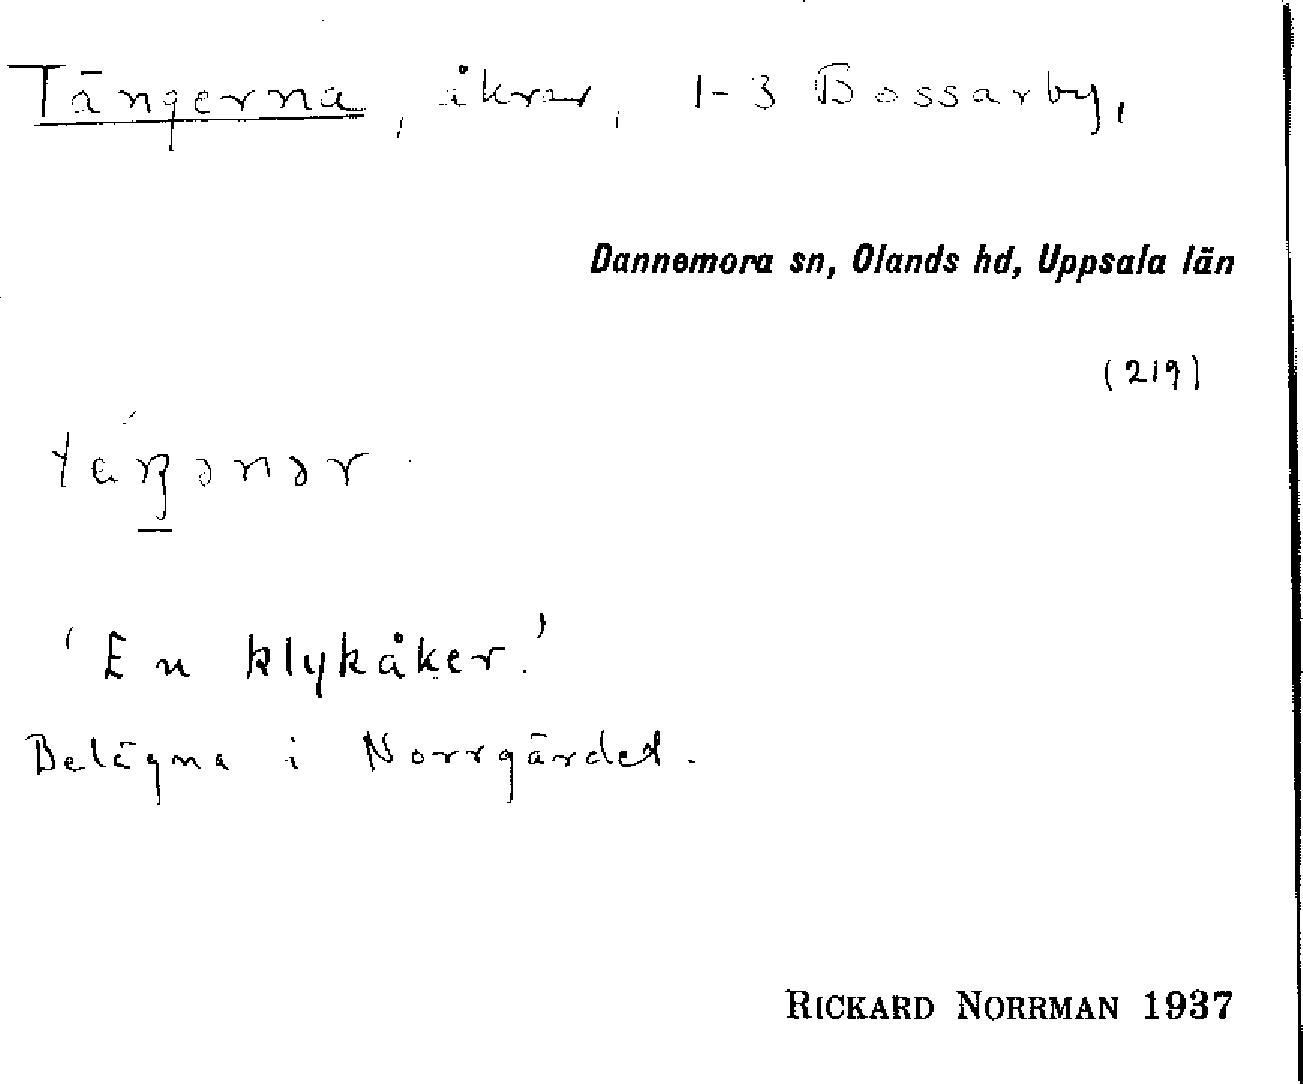 Tängerna, åkrar, 1-3 Bossarby,
Dannemora sn, Olands hd, Uppsala län
(219)
'En klykåker.'
Belägna i Norrgärdet.
RICKARD NORRMAN 1937